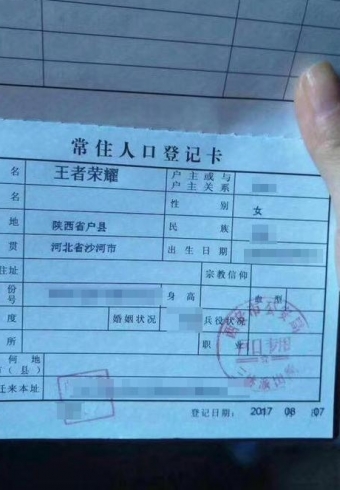 常住人口登记卡
名 王者荣耀 户主或与户主关系
性别 女
地 陕西省户县 民族
贯 河北省沙河市 出生日期
住址 宗教信仰
份号 身高 血型
度 婚姻状况 兵役状况
所 职业
何地
(县)
迁来本址
登记日期： 2017 08 07